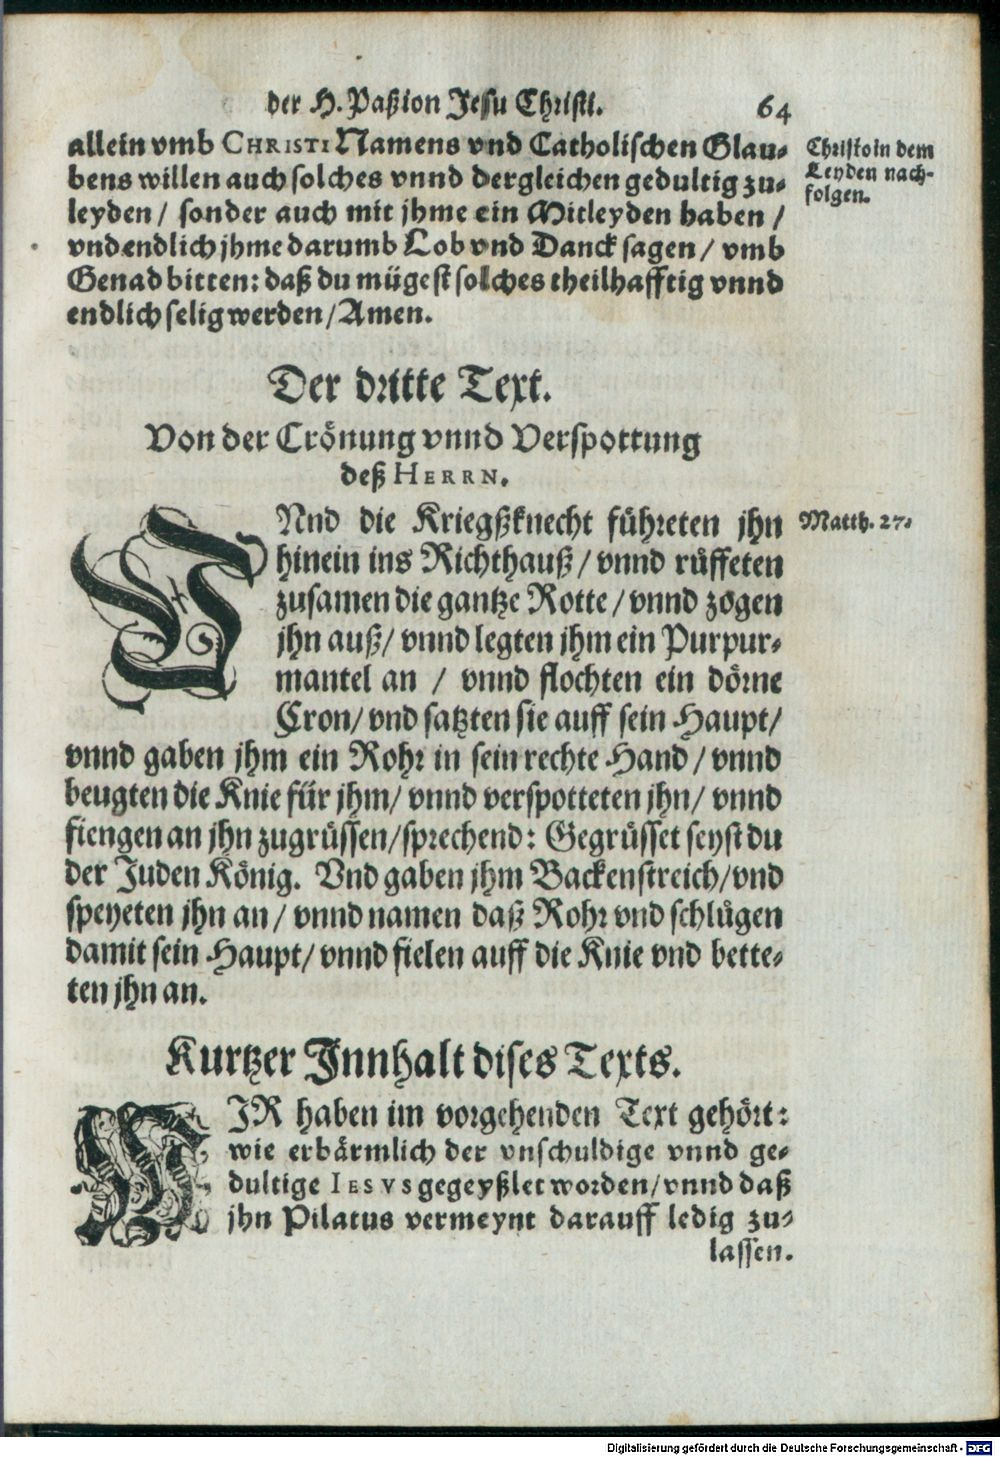 der H. Paßion Jesu Christi. 64
allein vmb CHRISTI Namens vnd Catholischen Glau-
bens willen auch solches vnnd dergleichen gedultig zu-
leyden / sonder auch mit jhme ein Mitleyden haben /
vnd endlich jhme darumb Lob vnd Danck sagen / vmb
Genad bitten: daß du mügest solches theilhafftig vnnd
endlich selig werden / Amen.
Christo in dem
Leyden nach-
folgen.
Der dritte Text.
Von der Crönung vnnd Verspottung
deß HERRN.
VNnd die Kriegßknecht führeten jhn
hinein ins Richthauß / vnnd rüffeten
zusamen die gantze Rotte / vnnd zogen
jhn auß / vnnd legten jhm ein Purpur-
mantel an / vnnd flochten ein dörne
Cron / vnd satzten sie auff sein Haupt /
vnnd gaben jhm ein Rohr in sein rechte Hand / vnnd
beugten die Knie für jhm / vnnd verspotteten jhn / vnnd
fiengen an jhn zugrüssen / sprechend: Gegrüsset seyst du
der Juden König. Vnd gaben jhm Backenstreich / vnd
speyeten jhn an / vnnd namen daß Rohr vnd schlügen
damit sein Haupt / vnnd fielen auff die Knie vnd bette-
ten jhn an.
Matth. 27.
Kurtzer Innhalt dises Texts.
WIR haben im vorgehenden Text gehört:
wie erbärmlich der vnschuldige vnnd ge-
dultige IESVS gegeyßlet worden / vnnd daß
jhn Pilatus vermeynt darauff ledig zu-
lassen.
Digitalisierung gefördert durch die Deutsche Forschungsgemeinschaft - DFG